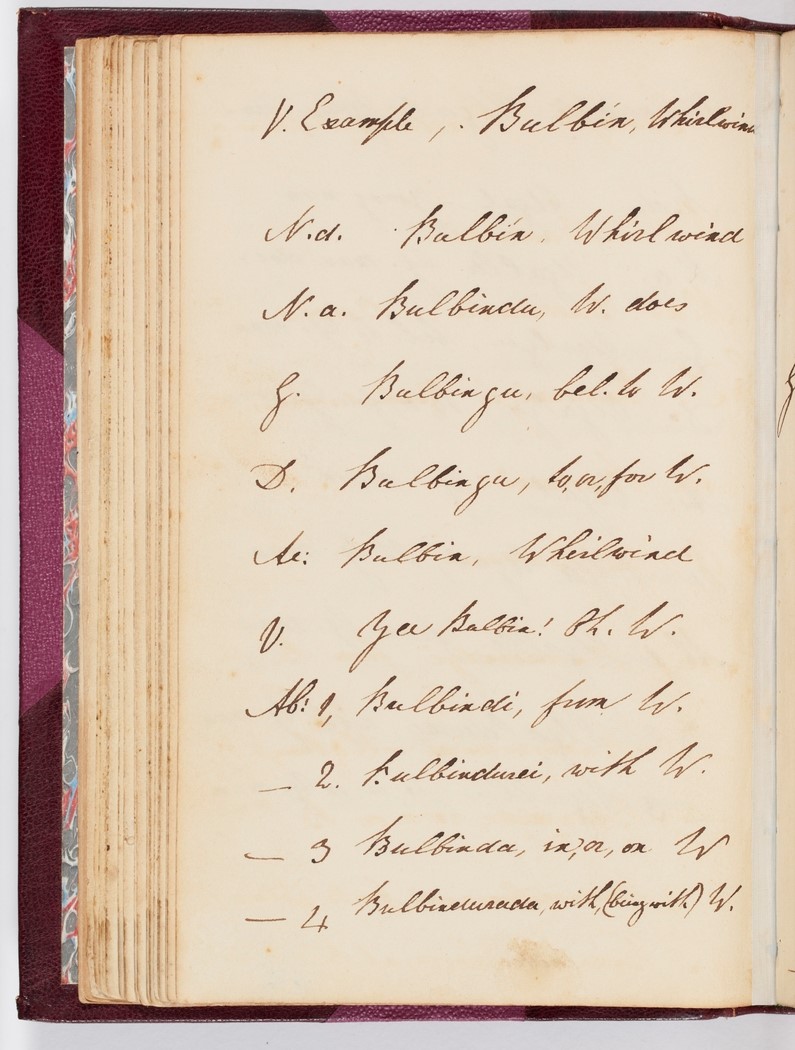 V. Example, . Bulbin, Whirlwin
N.d. Bulbin. Whirlwind
N.a. Bulbindu, W. does
G. Bulbingu, bel. to W.
D. Bulbingu, to, or, for W.
Ac: Bulbin, Whirlwind
V. Yea Bulbin! Oh. W.
Ab: 1, Bulbindi, from W.
— 2. Bulbindurei, with W.
— 3 Bulbinda, in, or, on W
— 4 Bulbindurada, with, (being with) W.